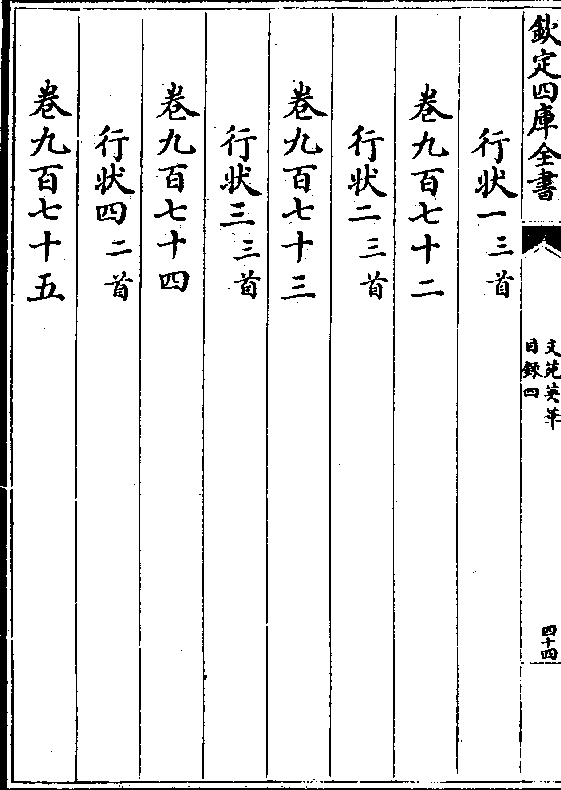 欽定四庫全書
文苑英華
目録四
四十四
行狀一三首
卷九百七十二
行狀二三首
卷九百七十三
行狀三三首
卷九百七十四
行狀四二首
卷九百七十五